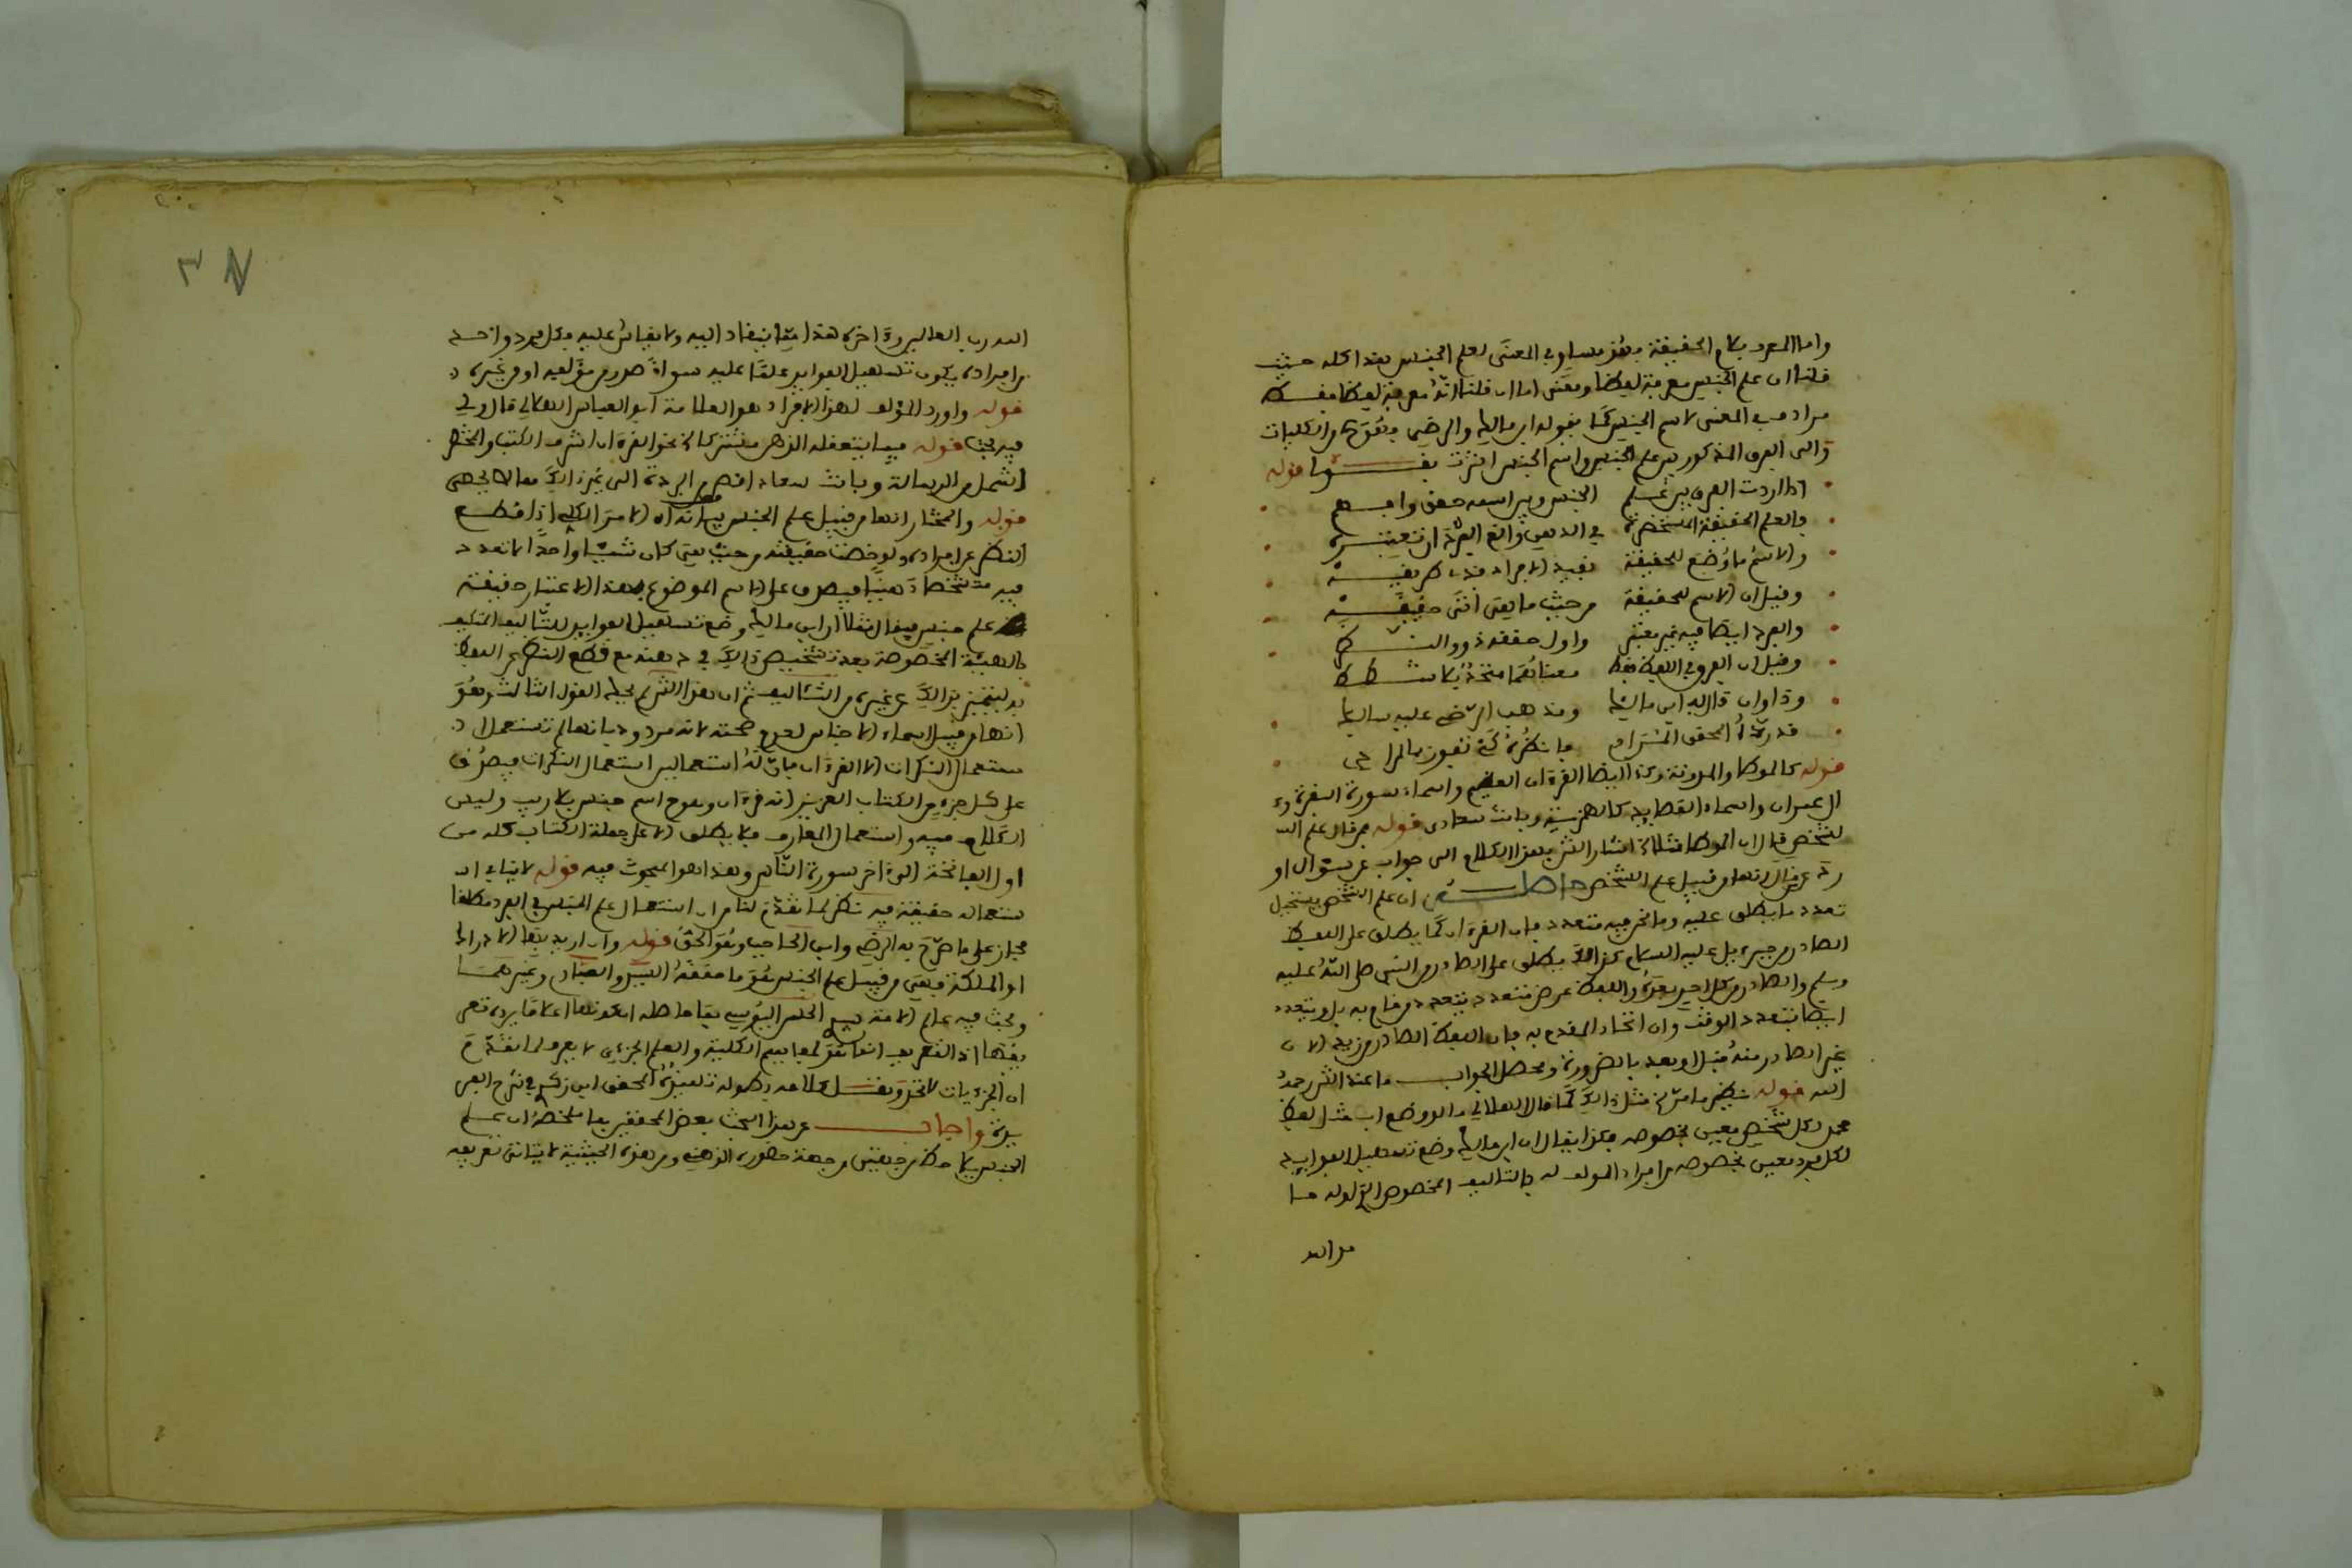 واما المعرف بلام الحقيقة فهو مساو في المعنى لعلم الجنس هذا كله حيث
قلنا ان علم الجنس معرفة لفظا ومعنى اما ان قلنا انه معرفة لفظا فقط
مرادف في المعنى لاسم الجنس كما يقوله ابن مالك والرضي
والى الفرق المذكور بين علم الجنس واسم الجنس اشرت بقولي قوله
اذا اردت الفرق بين علم الجنس وبين اسمه حقق وافهم
فالعلم الحقيقة المستحضرة في الذهن والغ الفرد ان تعتبره
والاسم ما وضع للحقيقة بقيد الافراد طريقة
وقيل ان الاسم للحقيقة من حيث ما يعنى اتى حقيقة
والفرد ايضا فيه غير معتبر واول حققه ذوو النظر
وقيل ان الفرق في اللفظ فقط معناهما متحد بلا شطط
وذا وان قال به ابن مالك ومذهب الرضي عليه سالك
قد رده المحقق المرام فانظره كي تفوز بالمرام
قوله كالموطا والمدونة وكذا ايضا القرءان العظيم واسماء سوره البقرة و
ال عمران واسماء القصايد كالهمزية وبانت سعاد قوله من قال علم
الشخص قال ان الموطا مثلا اشار الشر بهذا الكلام الى جواب عن سوال او
رد عن قال انها من قبيل علم الشخص حاصله ان علم الشخص يستحيل
تعدد ما يطلق عليه وما نحن فيه متعدد فان القرءان كما يطلق على اللفظ
الصادر من جبريل عليه السلام كذالك يطلق على الصادر من النبي صلى الله عليه
وسلم والصادر من كل احد يقرؤه واللفظ عرض متعدد بتعدد من قام به بل ويتعدد
ايضا بتعدد الوقت وان اتحد المقدم به فان اللفظ الصادر من زيد الان
غير الصادر منه قبل او بعد بالضرورة ومحصل الجواب ما عند الشر رحمه
الله قوله نظير ما مر في مثل ذالك كما قال الهلالي
لكل شخص معين بخصوصه فكذا يقال ان ابن مالك وضع تسهيل الفوايد
لكل فرد معين بخصوصه من افراد المولف له بالتاليف المخصوص الذي اوله
من الله
الله رب العالمين وءاخره هذا مما ينقاد اليه ولا يقاس عليه فكل فرد واحد
من افراده يكون تسهيل الفوايد علما عليه سواء صدر من مؤلفه او من غيره
قوله واورد المؤلف لهذا الايراد هو العلامة ابو العباس الهلالي قال وفي
فيه بحث قوله فيما يتعقله الذهن مشتركا في نحو القرءان اشرف الكتب والمختصر
اشمل من الرسالة وبانت سعاد افصح من البردة الى غير ذالك مما لا يحصى
قوله والمختار انها من قبيل علم الجنس بيانه ان الامر الكلي اذا قطع
النظر عن افراده ولوحظت حقيقته من حيث هي كان شيئا واحدا لا تعدد
فيه متشخصا ذهنيا فيصدق على الاسم الموضوع بهذا الاعتبار حقيقة
علم جنس فيقال مثلا ان ابن مالك وضع تسهيل الفوايد للتاليف المكيف
بالهيئة المخصوصة بعد تشخيص ذالك في ذهنه مع قطع النظر عن اللفظ
به ليتميز بذالك عن غيره من التئاليف ثم ان هذا الشر لم يحك القول الثالث وهو
انها من قبيل اسماء الاجناس لعدم صحته لانه مردود بانها لم تستعمل
استعمال النكرات الا القرءان فان له استعمالين استعمال النكرات فيصدق
على كل جزء من الكتاب العزيز انه قرءان وهو ح اسم جنس بلا ريب وليس
الكلام فيه واستعمال المعارف فلا يطلق الا على جملة الكتاب كله من
اول الفاتحة الى ءاخر سورة الناس وهذا هو المبحوث فيه قوله لا ينافي ان
استعماله حقيقة فيه نظر لما تقدم لنا من ان استعمال علم الجنس في الفرد مطلقا
مجاز على ما صرح به الرضي وابن الحاجب وهو الحق قوله وان اريد بها الادراك
او الملكة فهي من قبيل علم الجنس هو ما حققه اليسر والصبان وغيرهما
وبحث فيه عالم الامة
بقولها اذ التعريف انما هو لمفاهيم الكلية والعلم الجزءي لا يعرف لما تقدم
ان الجزءيات لا تحد المحقق ابن زكري في شرح الفر
يدة واجاب عن هذا البحث بعض المحققين بما ملخصه ان علم
الجنس من جهتين من جهة حضوره الذهني ومن هذه الحيثية لا يتاتى تعريفه